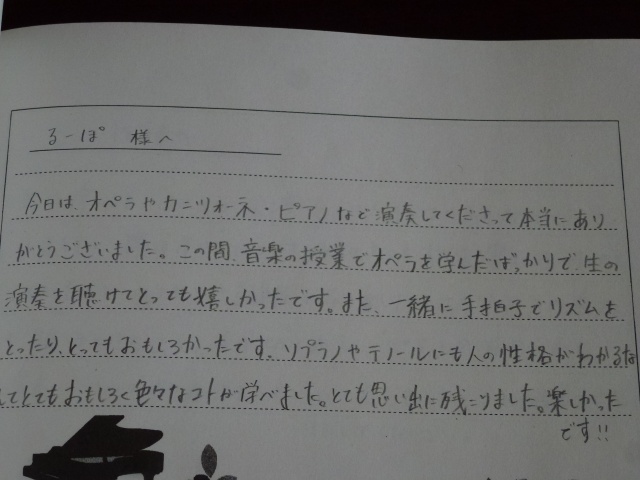 るーぱ° 様へ
今日は、オペラやカンツォーネ・ピアノなど演奏してくださって本当にあり
がとうございました。この間、音楽の授業でオペラを学んだばっかりで、生の
演奏を聴けてとっても嬉しかったです。また、一緒に手拍子でリズムを
とったり、とってもおもしろかったです。ソプラノやテノールにも人の性格がわかるな
してとてもおもしろく色々なコトが学べました。とても思い出に残こりました。楽しかった
です!!